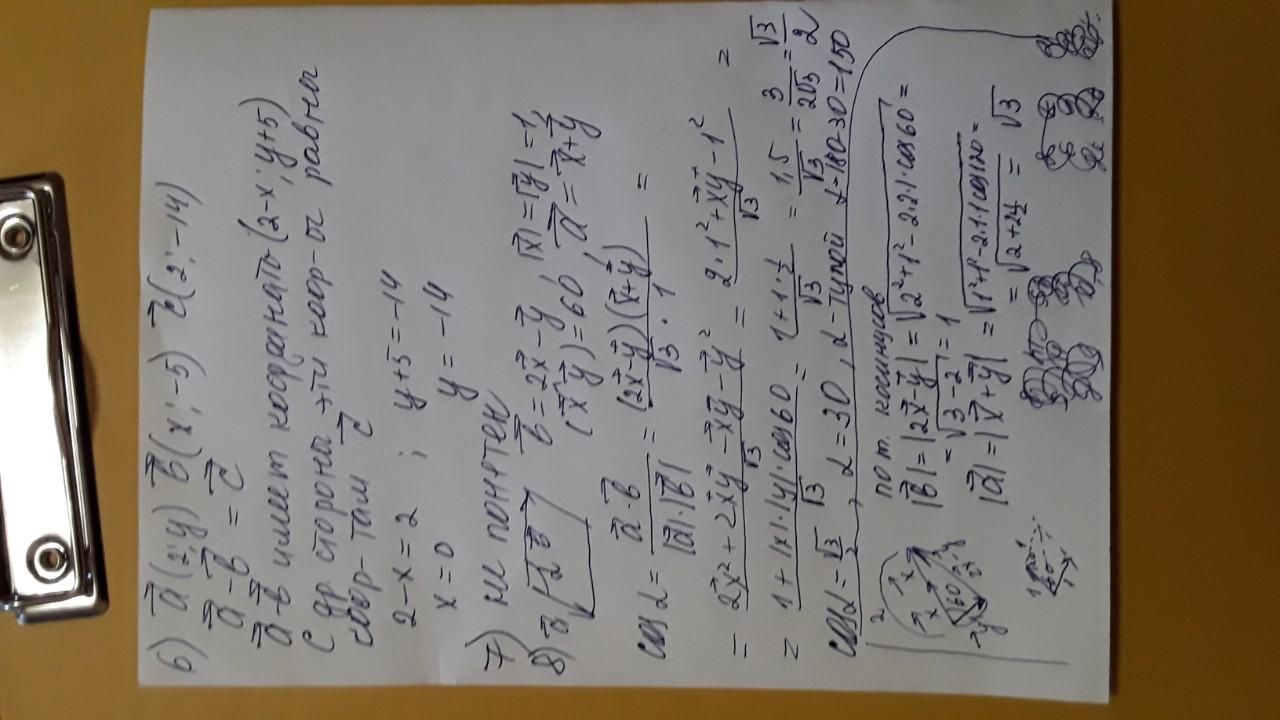 6) a⃗(2; y) b⃗(x; -5) c⃗(2; -14)
a⃗ - b⃗ = c⃗
a⃗-b⃗ имеет координаты (2-x; y+5)
С др. стороны эти коор-ты равны
коор-там c⃗
2-x=2 ; y+5=-14
x=0 y=-14
7) не понятен
8) b⃗ = 2x⃗ - y⃗, |x⃗|=|y⃗|=1,
(x⃗ y⃗)=60, a⃗ = x⃗+y⃗
cos α = a⃗·b⃗ / |a⃗|·|b⃗| = (2x⃗-y⃗)(x⃗+y⃗) / √3·1 =
= 2x⃗²+2x⃗y⃗-x⃗y⃗-y⃗² / √3 = 2·1²+x⃗y⃗-1² / √3 =
= 1+|x|·|y|·cos60 / √3 = 1+1·½ / √3 = 1,5 / √3 = 3 / 2√3 = √3 / 2
cosα = √3/2, α=30, α-тупой α=180-30=150
по т. косинусов
|b⃗|=|2x⃗-y⃗|=√2²+1²-2·2·1·cos60 =
= √3-2 = 1
|a⃗|=|x⃗+y⃗|=√1²+1²-2·1·1cos120 =